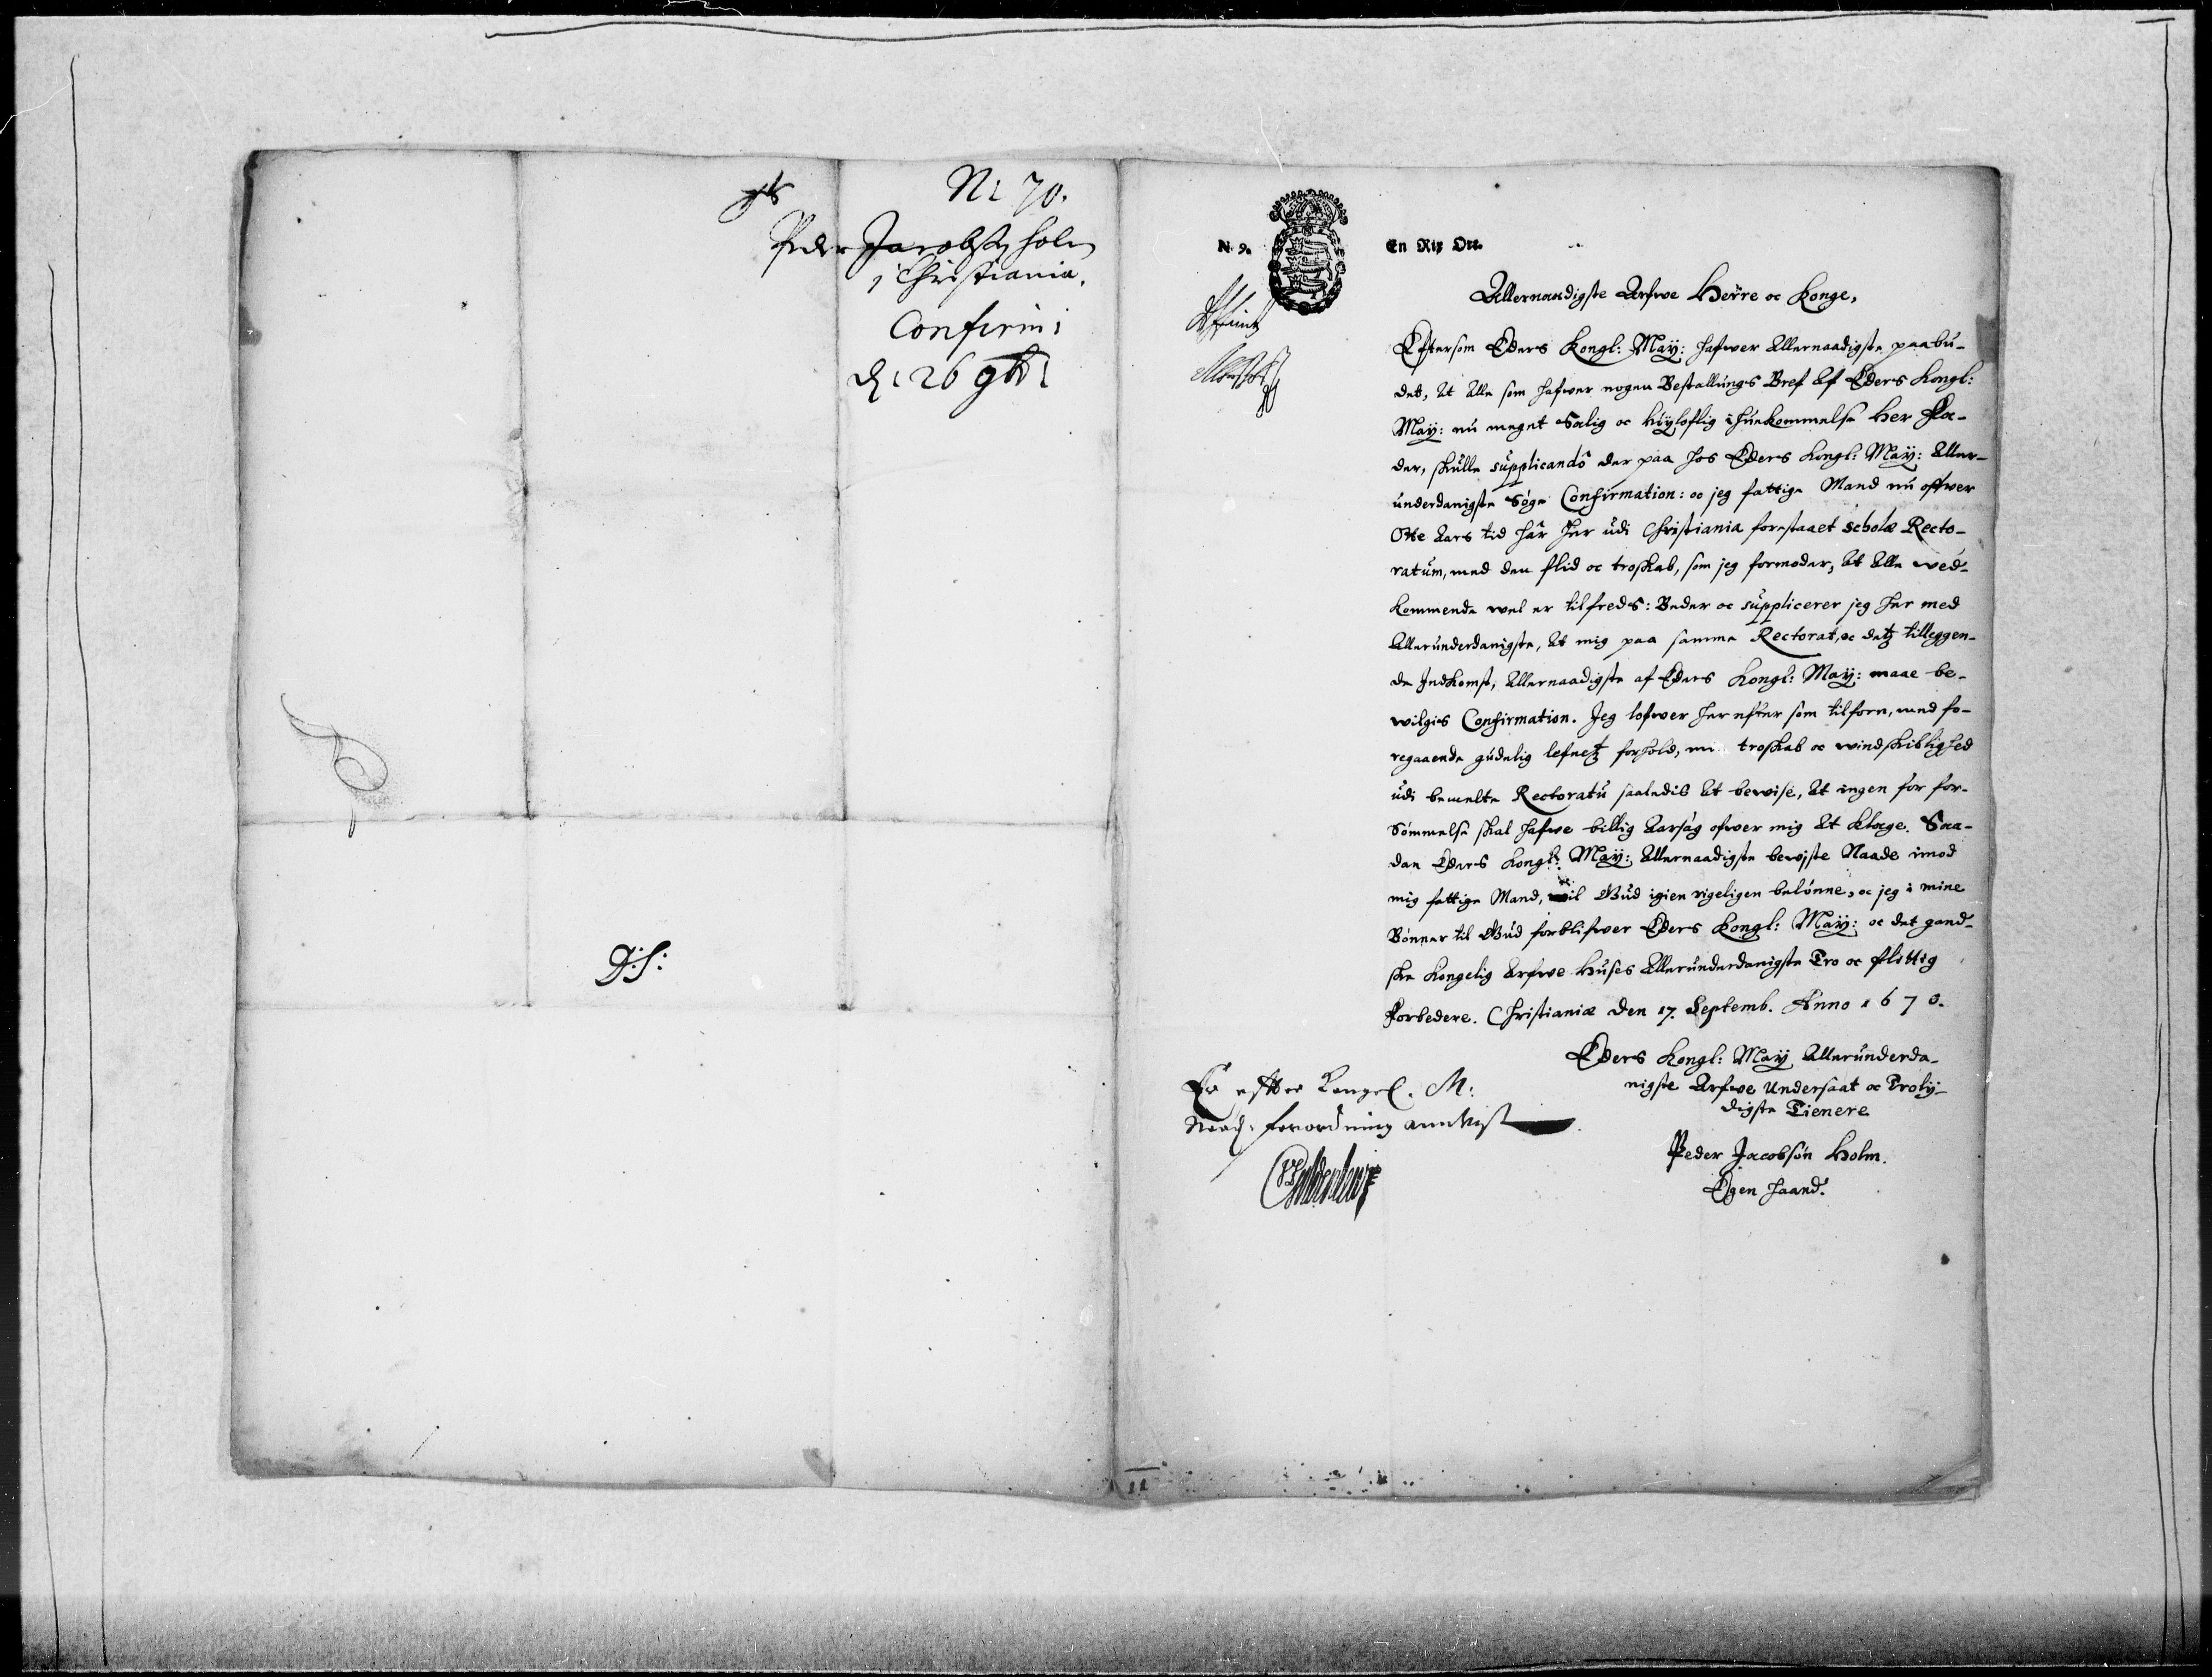 N: 70.
Peder Jacobsen Holm
i Christiania.
Confirm:
d: 26 9br:
D:S:
N. 9.
En Rix Ort.
Allernaadigste Arfwe Herre oc Konge,
Eftersom Eders Kongl: May: hafwer Allernaadigste paabu-
det, At Alle som hafwer nogen Bestallungs Bref Af Eders Kongl:
May: nu meget Salig oc höyloflig ihuekommelse Her Fa-
der, skulle supplicandô der paa hos Eders Kongl: May: Aller-
underdanigste Søge Confirmation: oc jeg fattige Mand nu offwer
Otte Aars tid hâr her udi Christiania forestaaet scholæ Recto-
ratum, med den flid oc troskab, som jeg formoder, At Alle wed-
kommende wel er tilfreds: Beder oc supplicerer jeg her med
Allerunderdanigste, At mig paa samme Rectorat, oc detz tilleggen-
de Indkomst, Allernaadigste af Eders Kongl: May: maae be-
wilgis Confirmation. Jeg lofwer her efter som tilforn, med fo-
regaaende gudelig lefnetz forhold, min troskab oc windskiblighed
udi bemelte Rectoratu saaledis At bewise, At ingen for for-
sömmelse skal hafwe billig Aarsag ofwer mig At klage. Saa-
dan Eders Kongl: May: Allernaadigste bewiste Naade imod
mig fattige Mand, wil Gud igien rigeligen belönne, oc jeg i mine
Bönner til Gud forblifwer Eders Kongl: May: oc det gand-
ske Kongelig Arfwe Huses Allerunderdanigste Tro oc flittig
Forbedere. Christianiæ den 17. Septemb. Anno 1670.
Eders Kongl: May Allerunderda-
nigste Arfwe Undersaat oc Troly-
digste Tienere
Peder Jacobsön Holm.
Egen haand.
Er efter Kongel. M:
Naad: forordning anvist
UFGyldenlew
11